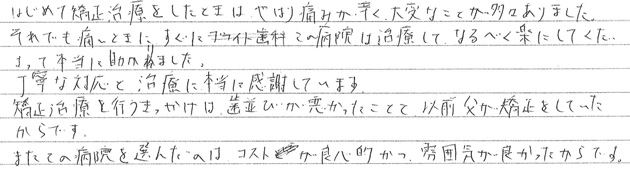 はじめて矯正治療をしたときは、やはり痛みが辛く、大変なことが多々ありました。
それでも痛いときに、すぐに この病院は治療して、なるべく楽にしてくださ
って本当に助かりました。
丁寧な対応と治療に本当に感謝しています。
矯正治療を行うきっかけは、歯並びが悪かったことと、以前父が矯正をしていた
からです。
またこの病院を選んだのは、コストが良心的かつ、雰囲気が良かったからです。